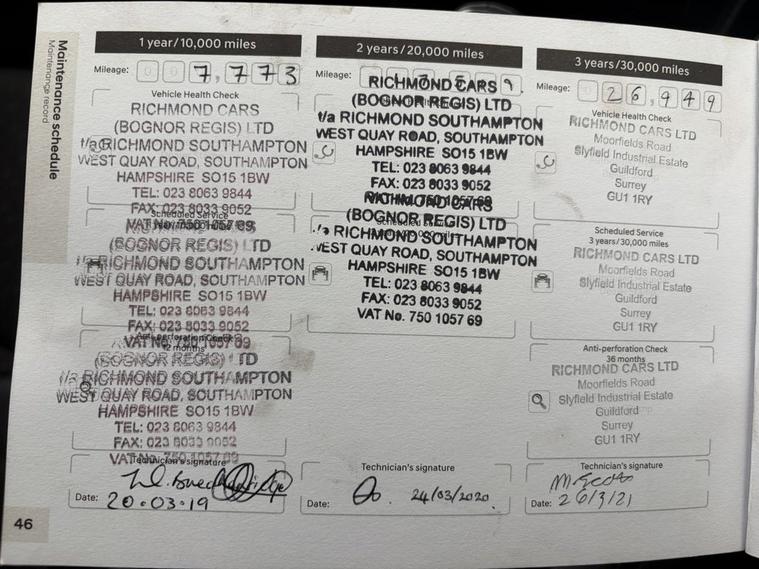 Maintenance schedule
Maintenance record
1 year/10,000 miles
Mileage: 0 0 7, 7 7 3
Vehicle Health Check
RICHMOND CARS
(BOGNOR REGIS) LTD
t/a RICHMOND SOUTHAMPTON
WEST QUAY ROAD, SOUTHAMPTON
HAMPSHIRE SO15 1BW
TEL: 023 8063 9844
FAX: 023 8033 9052
VAT No. 750 1057 69
Scheduled Service
(BOGNOR REGIS) LTD
t/a RICHMOND SOUTHAMPTON
WEST QUAY ROAD, SOUTHAMPTON
HAMPSHIRE SO15 1BW
TEL: 023 8063 9844
FAX: 023 8033 9052
VAT No. 750 1057 69
Anti-perforation Check
12 months
(BOGNOR REGIS) LTD
t/a RICHMOND SOUTHAMPTON
WEST QUAY ROAD, SOUTHAMPTON
HAMPSHIRE SO15 1BW
TEL: 023 8063 9844
FAX: 023 8033 9052
VAT No. 750 1057 69
Technician's signature
Date: 20.03.19
2 years/20,000 miles
Mileage:
RICHMOND CARS
(BOGNOR REGIS) LTD
t/a RICHMOND SOUTHAMPTON
WEST QUAY ROAD, SOUTHAMPTON
HAMPSHIRE SO15 1BW
TEL: 023 8063 9844
FAX: 023 8033 9052
VAT No. 750 1057 69
RICHMOND CARS
(BOGNOR REGIS) LTD
t/a RICHMOND SOUTHAMPTON
WEST QUAY ROAD, SOUTHAMPTON
HAMPSHIRE SO15 1BW
TEL: 023 8063 9844
FAX: 023 8033 9052
VAT No. 750 1057 69
Technician's signature
Date: 24/03/2020
3 years/30,000 miles
Mileage: 0 2 6, 9 4 9
Vehicle Health Check
RICHMOND CARS LTD
Moorfields Road
Slyfield Industrial Estate
Guildford
Surrey
GU1 1RY
Scheduled Service
3 years/30,000 miles
RICHMOND CARS LTD
Moorfields Road
Slyfield Industrial Estate
Guildford
Surrey
GU1 1RY
Anti-perforation Check
36 months
RICHMOND CARS LTD
Moorfields Road
Slyfield Industrial Estate
Guildford
Surrey
GU1 1RY
Technician's signature
Date: 26/3/21
46